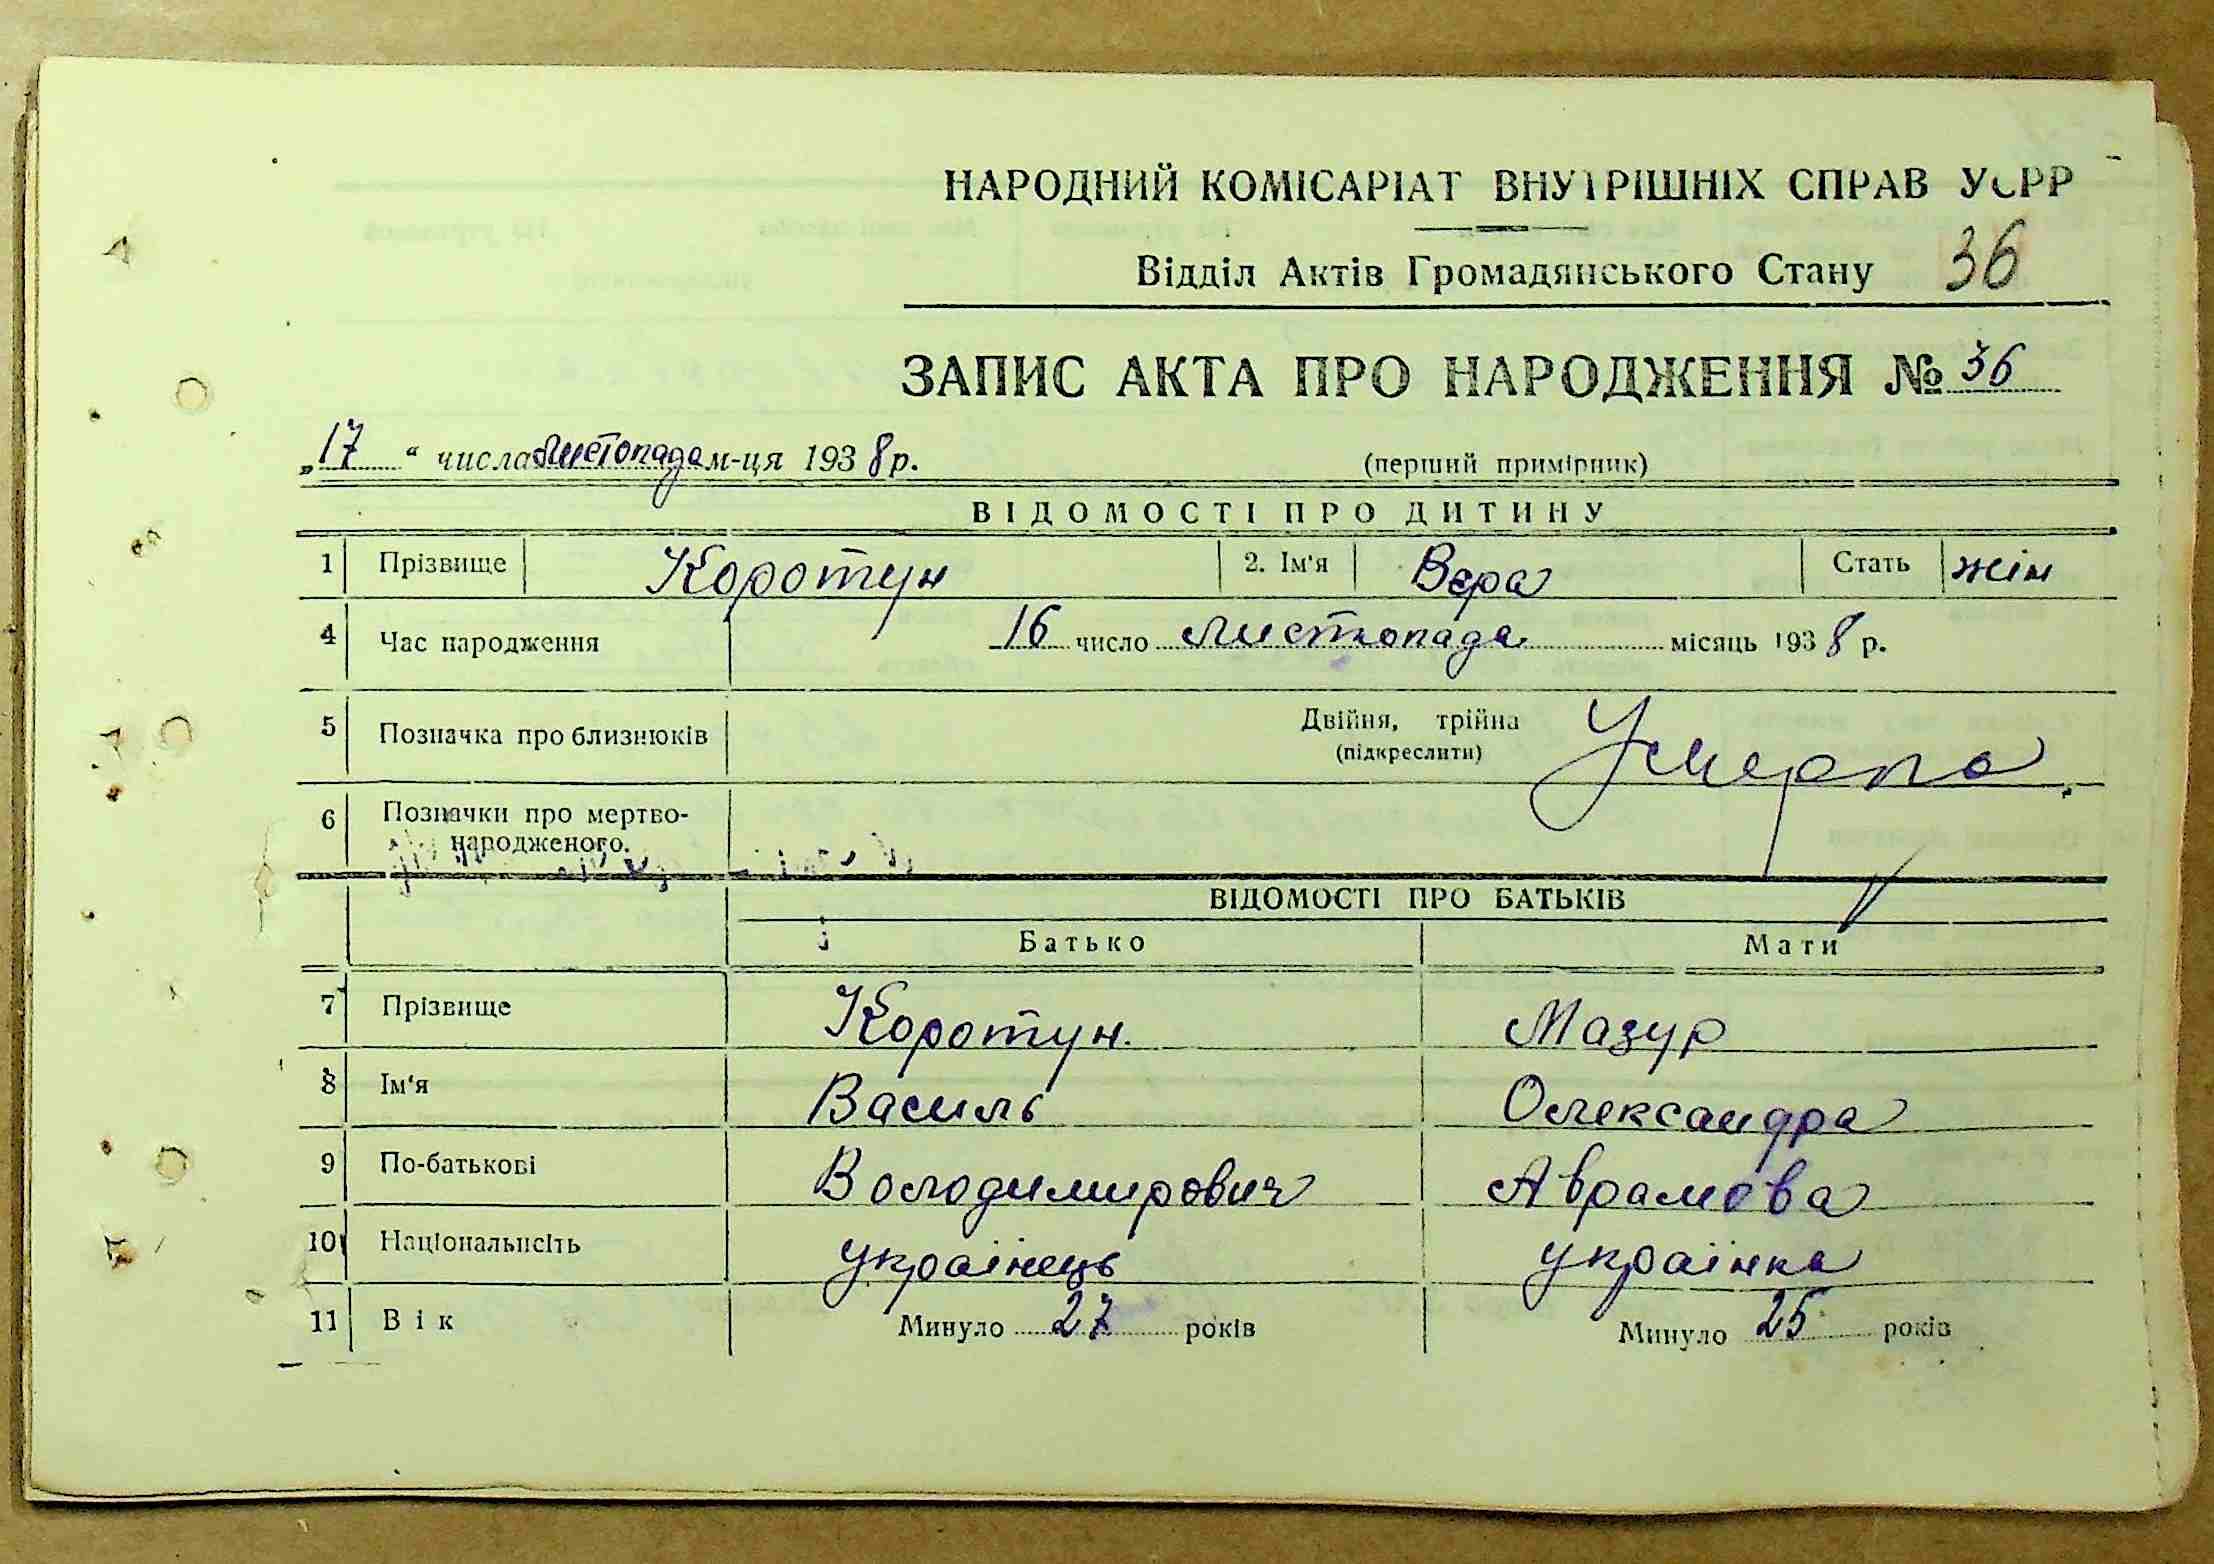 НАРОДНИЙ КОМІСАРІАТ ВНУТРІШНІХ СПРАВ УСРР
Відділ Актів Громадянського Стану 36
ЗАПИС АКТА ПРО НАРОДЖЕННЯ № 36
„17“ числа листопада м-ця 1938 р. (перший примірник)
ВІДОМОСТІ ПРО ДИТИНУ
1 Прізвище Коротун 2. Ім'я Вера Стать жін
4 Час народження 16 число листопада місяць 1938 р.
5 Позначка про близнюків Двійня, трійна
(підкреслити)
Умерла
6 Позначки про мертво-
народженого.
ВІДОМОСТІ ПРО БАТЬКІВ
Батько Мати
7 Прізвище Коротун. Мазур
8 Ім'я Василь Олександра
9 По-батькові Володимирович Аврамова
10 Національнсіть українець українка
11 Вік Минуло 27 років Минуло 25 років